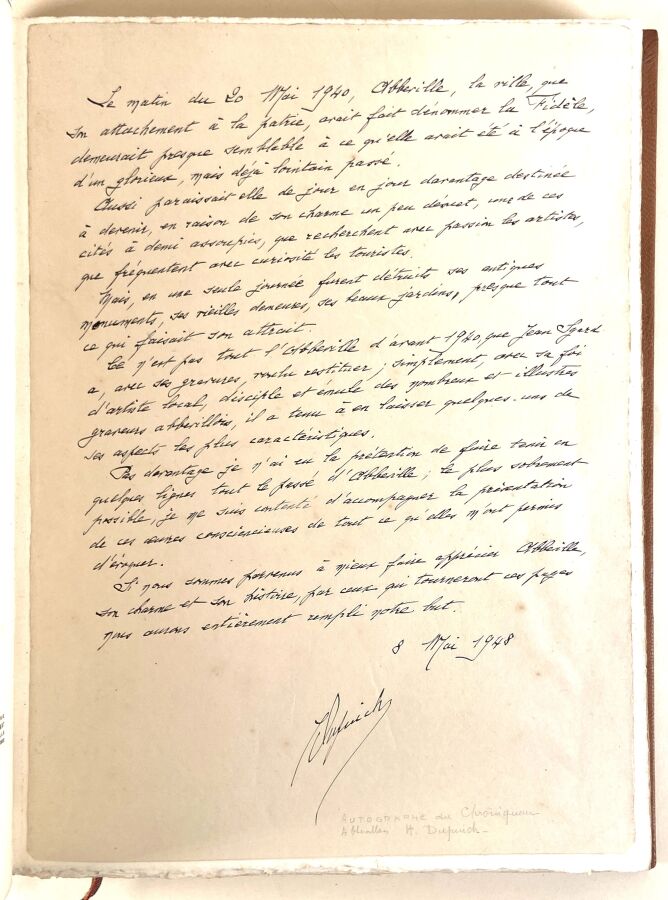 Le matin du 20 Mai 1940, Abbeville, la ville, que
son attachement à la patrie, avait fait dénommer la Fidèle,
demeurait presque semblable à ce qu'elle avait été à l'époque
d'un glorieux, mais déjà lointain passé.
Aussi paraissait elle de jour en jour davantage destinée
à devenir, en raison de son charme un peu desuet, une de ces
cités à demi assoupies, que recherchent avec passion les artistes,
que fréquentent avec curiosité les touristes.
Mais, en une seule journée furent détruits ses antiques
monuments, ses vieilles demeures, ses beaux jardins, presque tout
ce qui faisait son attrait.
Ce n'est pas tout l'Abbeville d'avant 1940, que Jean
a, avec ses gravures, voulu restituer; simplement, avec sa foi
d'artiste local, disciple et émule des nombreux et illustres
graveurs abbevillois, il a tenu à en laisser quelques-uns de
ses aspects les plus caractéristiques.
Pas davantage je n'ai eu la prétention de faire tenir en
quelques lignes tout le passé d'Abbeville; le plus sobrement
possible, je me suis contenté d'accompagner la présentation
de ces œuvres consciencieuses de tout ce qu'elles m'ont permis
d'évoquer.
Si nous sommes parvenus à mieux faire apprécier Abbeville,
son charme et son histoire, par ceux qui tourneront ces pages
nous aurons entièrement rempli notre but.
8 Mai 1948
AUTOGRAPHE du Chroniqueur
H. Dupuich